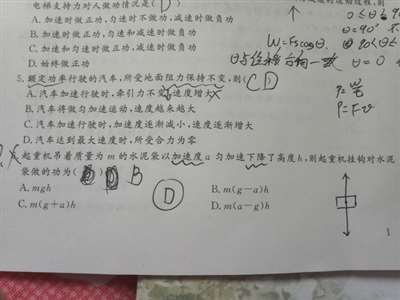 电梯支持力对人做功情况是( D )
A. 加速时做正功,匀速时不做功,减速时做负功
B. 加速时做正功,匀速和减速时做负功
C. 加速和匀速时做正功,减速时做负功
D. 始终做正功
W=Fscosθ
θ=0
5. 额定功率行驶的汽车,所受地面阻力保持不变,则( CD
A. 汽车加速行驶时,牵引力不变,速度增大
B. 汽车将做匀加速运动,速度越来越大
C. 汽车加速行驶时,加速度逐渐减小,速度逐渐增大
D. 汽车达到最大速度时,所受合力为零
P=F·v
起重机吊着质量为 m 的水泥浆以加速度 a 匀加速下降了高度 h,则起重机挂钩对水泥
浆做的功为( ) B
A. mgh
B. m(g-a)h
C. m(g+a)h
D. m(a-g)h
D
1